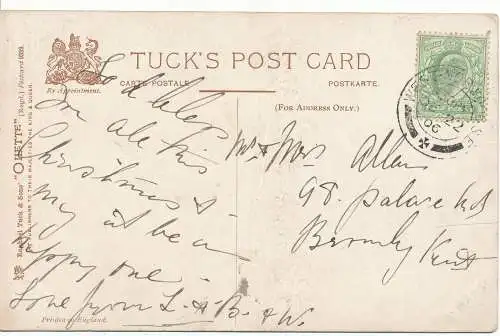 TUCK'S POST CARD
CARTE POSTALE
POSTKARTE.
By Appointment.
(FOR ADDRESS ONLY.)
Raphael Tuck & Sons' "OILETTE" [Regd.] Postcard
ART PUBLISHERS TO THEIR MAJESTIES THE KING & QUEEN.
God bless
you all this
Christmas &
may it be a
happy one
Love from L & B & W.
Printed in England.
Mr & Mrs Allen
98. Palace Rd
Bromly Kent
22
06